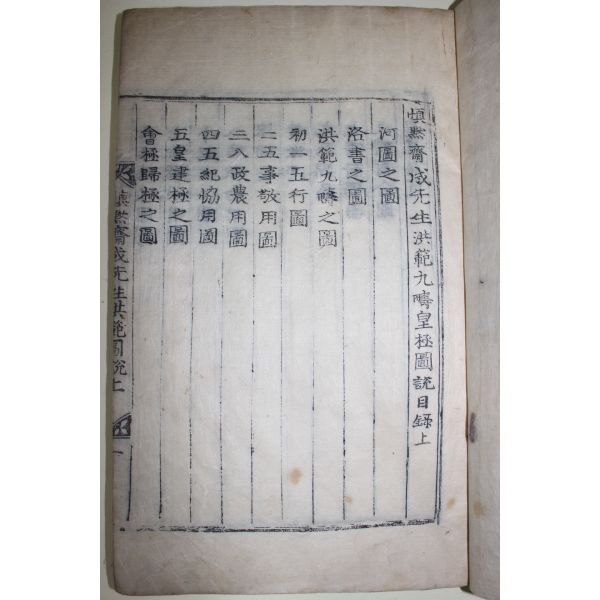 愼默齋成先生洪範九疇皇極圖說目錄上
河圖之圖
洛書之圖
洪範九疇之圖
初一五行圖
二五事敬用圖
三八政農用圖
四五紀協用圖
五皇建極之圖
會極歸極之圖
愼默齋成先生洪範圖說上
一